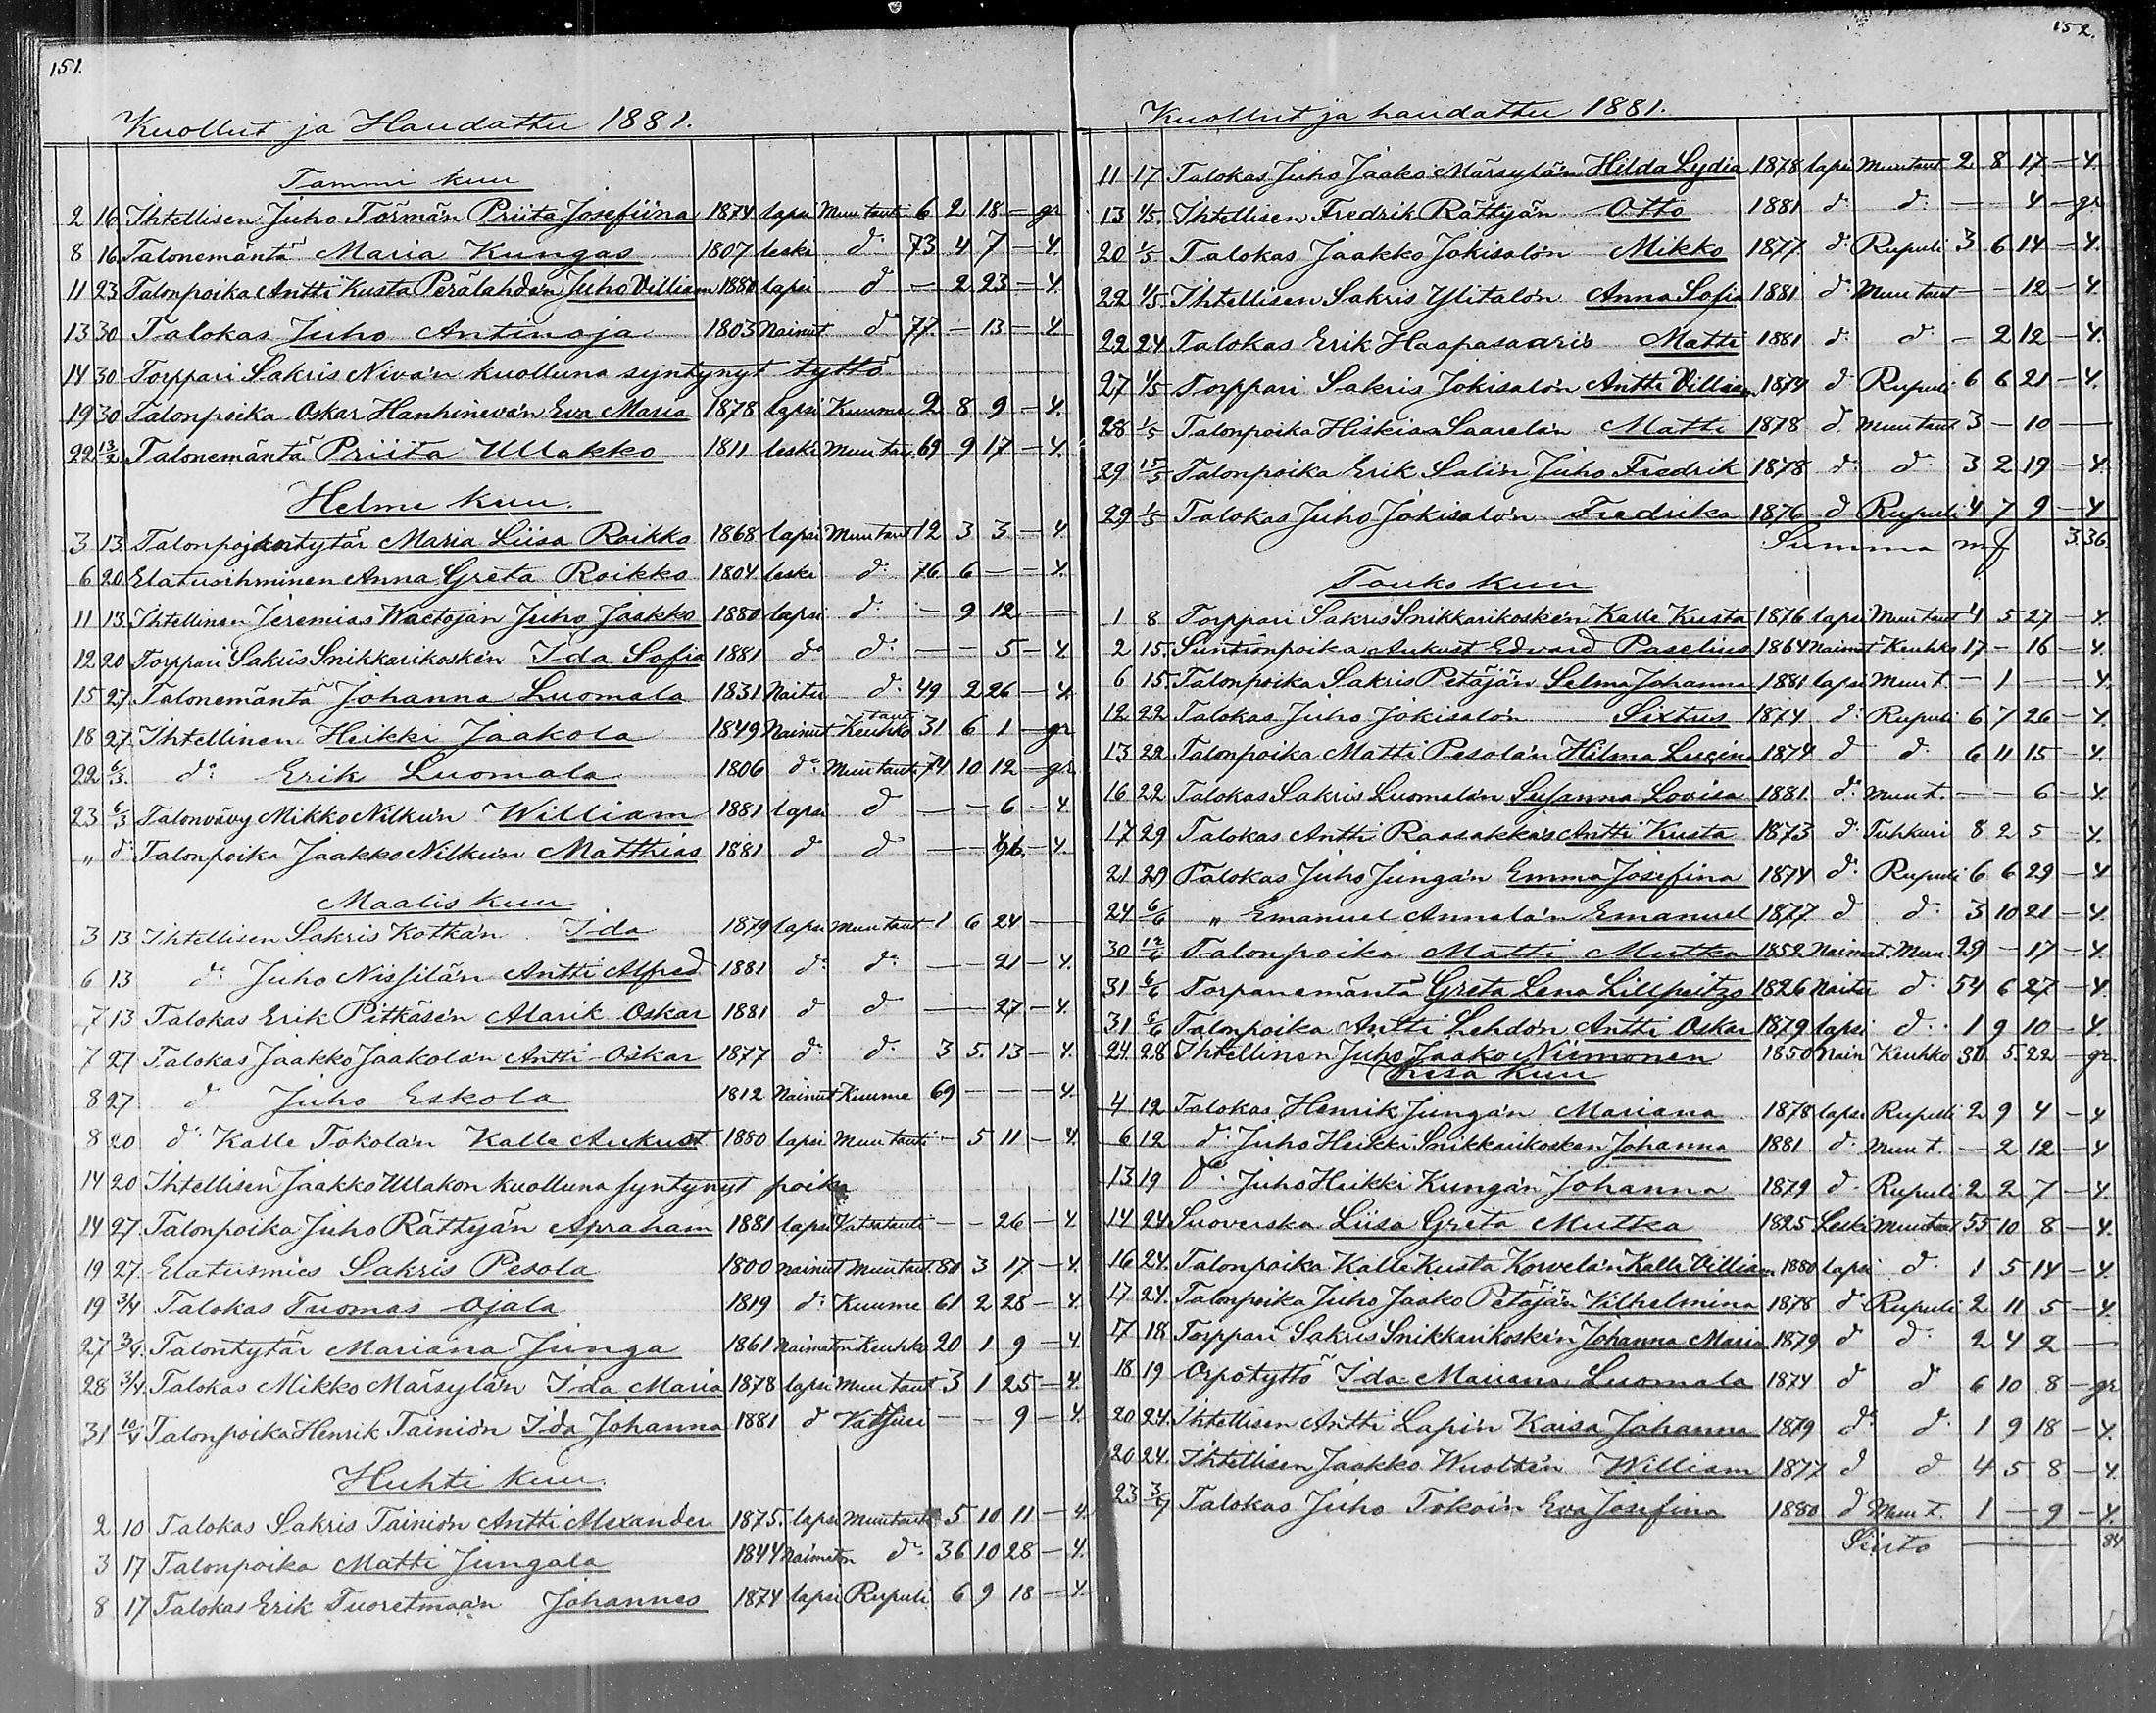 151.
Kuollut ja Haudattu 1881.
Tammi kuu
2 16 Ihtellisen Juho Törmän Priita Josefiina 1874 lapsi Muu tauti 6 2 18 — gr
8 16 Talonemäntä Maria Kungas 1807 leski d:o 73 4 7 — 4.
11 23 Talonpoika Antti Kusta Perälahden Juho Villiam 1880 lapsi d — 2 23 — 4.
13 30 Talokas Juho Antinoja 1803 Nainut d:o 77. — 13 — 4.
14 30 Torppari Sakris Niva'n kuolluna syntynyt tyttö
19 30 Talonpoika Oskar Hanhineva'n Eva Maria 1878 lapsi Kuume 2 8 9 — 4.
22 13/2 Talonemäntä Priita Ullakko 1811 leski Muu tau. 69 9 17 — 4.
Helme kuu.
3 13. Talonpojantytär Maria Liisa Roikko 1868 lapsi Muu taut 12 3 3 — 4
6 20 Elatusihminen Anna Greta Roikko 1804 leski d:o 76. 6 — — 4.
11 13. Ihtellinen Jeremias Wactojan Juho Jaakko 1880 lapsi d:o — 9 12 —
12 20 Torppari Sakris Snikkarikosken Ida Sofia 1881 d:o d:o — — 5 — 4
15 27. Talonemäntä Johanna Luomala 1831 Naitu d:o 49 2 26 — 4
18 27. Ihtellinen Heikki Jaakola 1849 Nainut Keuhko tauti 31 6 1 — gr
22 6/3. d:o Erik Luomala 1806 d:o Muu tauti 74 10 12 — gr.
23 6/3 Talonvävy Mikko Nilku'n William 1881 lapsi d — — 6 — 4
„ d:o Talonpoika Jaakko Nilku'n Matthias 1881 d d — — — 4.
Maalis kuu
3 13 Ihtellisen Sakris Kotka'n Ida 1879 lapsi Muu taut 1 6 24 —
6 13 d:o Juho Nissilä'n Antti Alfred 1881 d:o d:o — — 21 — 4.
7 13 Talokas Erik Pitkäse'n Alarik Oskar 1881 d d — — 27 — 4.
7 27 Talokas Jaakko Jaakola'n Antti Oskar 1877 d:o d:o 3 5. 13 — 4.
8 27 d Juho Eskola 1812 Nainut Kuume 69 — — — 4.
8 20 d:o Kalle Tokola'n Kalle Aukust 1880 lapsi Muu tauti — 5 11 — 4.
14 20 Ihtellisen Jaakko Ullakon kuolluna syntynyt poika
14 27. Talonpoika Juho Rättyä'n Apraham 1881 lapsi Vatsatauti — — 26 — 4
19 27. Elatusmies Sakris Pesola 1800 nainut Muu taut. 80 3 17 — 4.
19 3/4 Talokas Tuomas Ojala 1819 d:o Kuume 61 2 28 — 4.
27 3/4. Talontytär Mariana Junga 1861 Naimaton Keuhko 20 1 9 — 4.
28 3/4. Talokas Mikko Märsylä'n Ida Maria 1878 lapsi Muu taut 3 1 25 — 4.
31 10/4 Talonpoika Henrik Tainio'n Ida Johanna 1881 d — — 9 — 4.
Huhti kuu.
2 10 Talokas Sakris Tainio'n Antti Alexander 1875. lapsi Muu tauti 5 10 11 — 4.
3 17 Talonpoika Matti Jungala 1844 Naimaton d:o 36 10 28 — 4.
8 17 Talokas Erik Tuoretmaa'n Johannes 1874 lapsi Rupuli 6 9 18 — 4.
152.
Kuollut ja haudattu 1881.
11 17 Talokas Juho Jaako Märsylä'n Hilda Lydia 1878 lapsi Muu taut 2 8 17 — 4.
13 1/5. Ihtellisen Fredrik Rättyän Otto 1881 d:o d:o — — 4 — gr
20 1/5 Talokas Jaakko Jokisalo'n Mikko 1877. d:o Rupuli 3 6 14 — 4.
22 1/5 Ihtellisen Sakris Ylitalo'n Anna Sofia 1881 d:o Muu taut — — 12 — 4.
22 24 Talokas Erik Haapasaari's Matti 1881 d: d: — 2 12 — 4.
27 1/5 Torppari Sakris Jokisalo'n Antti Villiam 1874 d:o Rupuli 6 6 21 — 4.
28 1/5 Talonpoika Hiskias Saarela'n Matti 1878 d. Muu taut 3 — 10 —
29 15/5 Talonpoika Erik Salin Juho Fredrik 1878 d: d: 3 2 19 — 4.
29 1/5 Talokas Juho Jokisalo'n Fredrika 1876 d Rupuli 4 7 9 — 4
Summa mf 3 36.
Touko kuu
1 8 Torppari Sakris Snikkarikoske'n Kalle Kusta 1876 lapsi Muu taut 4 5 27 — 4.
2 15. Suntionpoika Aukust Edvard Paselius 1864 Naimat Keuhko 17 — 16 — 4.
6 15. Talonpoika Sakris Petäjä'n Selma Johanna 1881 lapsi Muu t. — 1 — — 4.
12 22 Talokas Juho Jokisalo'n Sixtus 1874 d: Rupuli 6 7 26 — 4.
13 22 Talonpoika Matti Pesola'n Hilma Lucina 1874 d d: 6 11 15 — 4.
16 22 Talokas Sakris Luomala'n Susanna Lovisa 1881. d: Muu t. — — 6 — 4.
17 29 Talokas Antti Raasakka's Antti Kusta 1873 d: Tuhkuri 8 2 5 — 4.
21 29 Talokas Juho Junga'n Emma Josefina 1874 d: Rupuli 6 6 29 — 4
24 6/6 „ Emanuel Annala'n Emanuel 1877. d d: 3 10 21 — 4.
30 12/6 Talonpoika Matti Mutka 1852 Naimat. Muu. 29 — 17 — 4.
31 6/6 Torpanemäntä Greta Lena Lillpeitzo 1826 Naitu d: 54 6 27 — 4.
31 6/6 Talonpoika Antti Lehdo'n Antti Oskar 1879 lapsi d: 1 9 10 — 4.
24 28 Ihtellinen Juho Jaako Niemonen 1850 Nain Keuhko 30 5 22 — gr.
Kesä kuu
4 12 Talokas Henrik Junga'n Mariana 1878 lapsi Rupuli 2 9 4 — 4
6 12 d: Juho Heikki Snikkarikosken Johanna 1881 d. Muu t. — 2 12 — 4
13 19 d:o Juho Heikki Kunga'n Johanna 1879 d. Rupuli 2 2 7 — 4.
14 24 Suoverska Liisa Greta Mutka 1825 Leski Muu taut 55 10 8 — 4.
16 24. Talonpoika Kalle Kusta Korvela'n Kalle Villiam 1880 lapsi d: 1 5 14 — 4.
17 24. Talonpoika Juho Jaako Petäjä'n Vilhelmina 1878 d: Rupuli 2 11 5 — 4.
17 18 Torppari Sakris Snikkarikoske'n Johanna Maria 1879 d d: 2 4 2 —
18 19 Orpotyttö Ida Mariana Luomala 1874 d d 6 10 8 — gr
20 24. Ihtellisen Antti Lapi'n Kaisa Johanna 1879 d: d: 1 9 18 — 4.
20 24. Ihtellisen Jaakko Wuolte'n William 1877 d d 4 5 8 — 4.
23 3/7 Talokas Juho Tokoi'n Eva Josefina 1880 d Muu t. 1 — 9 — 4.
Siirto — 84